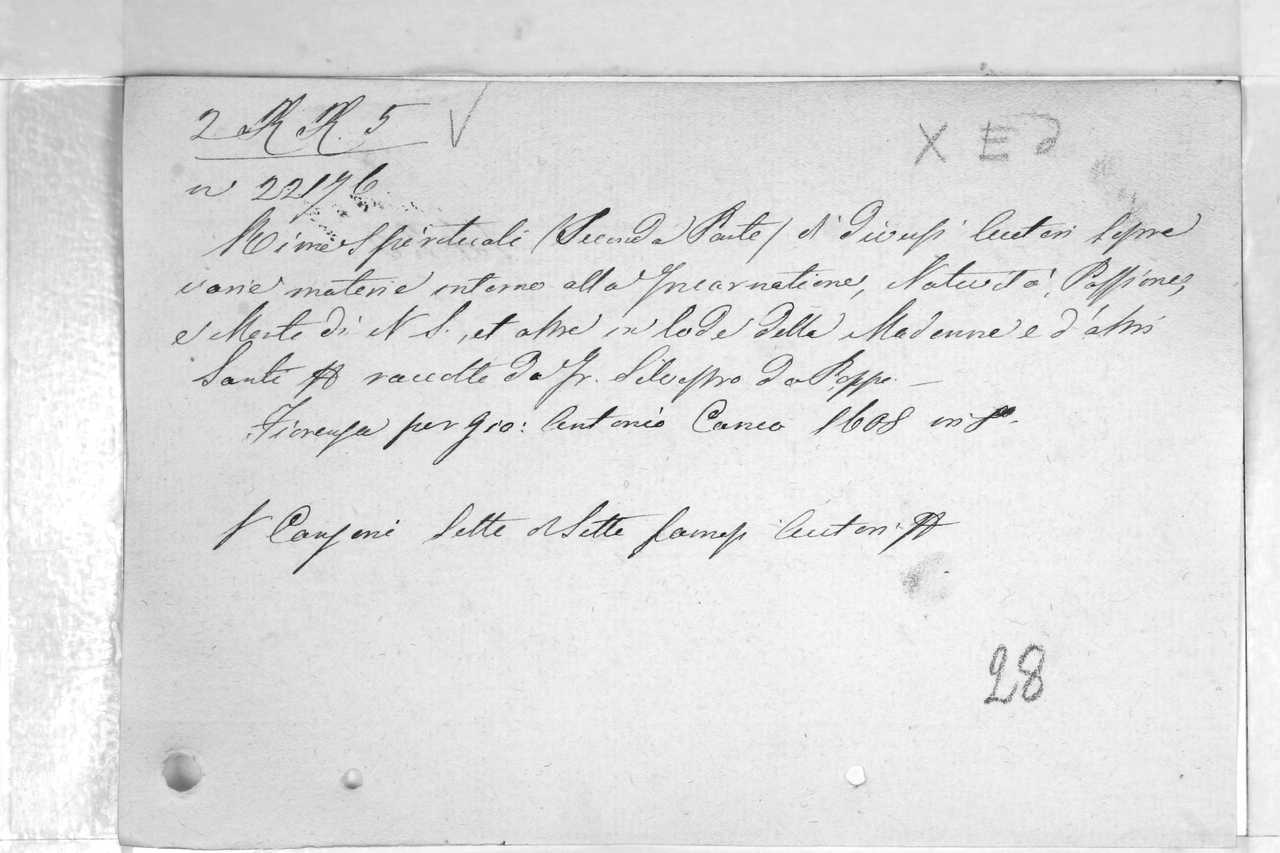 2 R R. 5 V
X E d
n 22176
Rime Spirituali (Seconda Parte) di Diversi Autori sopra
varie materie intorno alla Incarnatione, Natività, Passione,
e Morte di N S., et altre in lode della Madonna e d'altri
Santi raccolte da Fr. Silvestro da Poppi. —
Fiorenza per Gio: Antonio Caneo 1608 in 8°.
Canzoni Sette di Sette famosi Autori
28